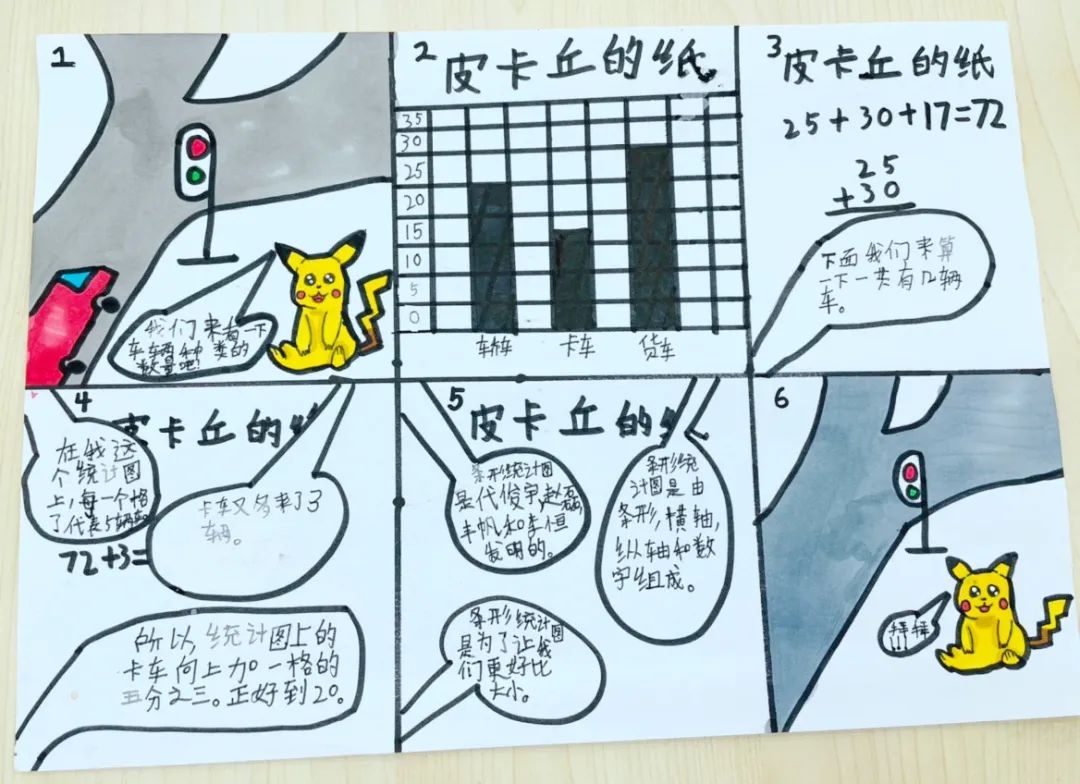 1
我们来看一下
车车两种类的
数量吧!
2
皮卡丘的纸
35
30
25
20
15
10
5
0
轿车
卡车
货车
3
皮卡丘的纸
25+30+17=72
25
+30
下面我们来算
一下一共有几辆
车。
4
皮卡丘的
在我这
个统计图
上,每一个格
了代表5辆车
卡车又多来了3
辆。
72+3=
所以统计图上的
卡车向上加一格的
五分之三。正好到20。
5
皮卡丘的
条形统计图
是代俊宇,赵磊,
丰帆和李恒
发明的。
条形统
计图是由
条形,横轴,
纵轴和数
字组成。
条形统计图
是为了让我
们更好比
大小。
6
拜拜
!!!